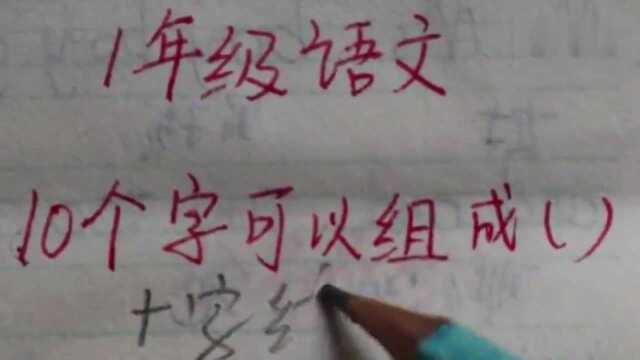 1年级语文
10个字可以组成()
十字